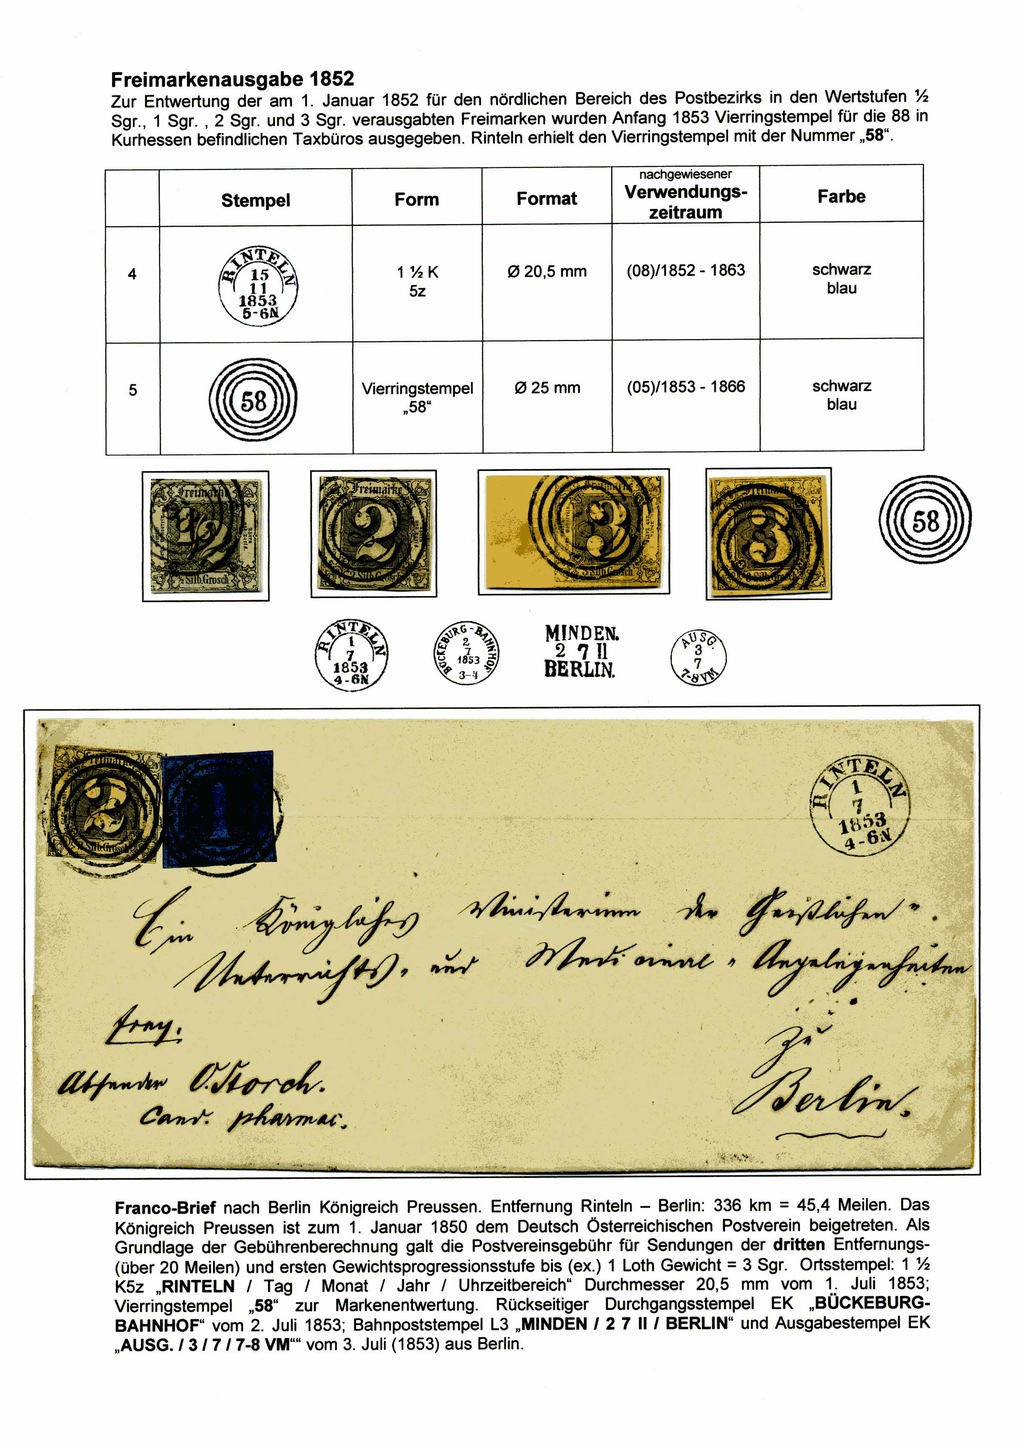 Freimarkenausgabe 1852
Zur Entwertung der am 1. Januar 1852 für den nördlichen Bereich des Postbezirks in den Wertstufen ½
Sgr., 1 Sgr. , 2 Sgr. und 3 Sgr. verausgabten Freimarken wurden Anfang 1853 Vierringstempel für die 88 in
Kurhessen befindlichen Taxbüros ausgegeben. Rinteln erhielt den Vierringstempel mit der Nummer „58“.
Stempel
Form
Format
nachgewiesener
Verwendungs-
zeitraum
Farbe
4
RINTELN
15
11
1853
5-6N
1 ½ K
5z
Ø 20,5 mm
(08)/1852 - 1863
schwarz
blau
5
58
Vierringstempel
„58“
Ø 25 mm
(05)/1853 - 1866
schwarz
blau
Freimarke
1/2
½ Silb.Grosch
Freimarke
2
Freimarke
3
3 Silb.Grosch
Freimarke
3
58
RINTELN
1
7
1853
4-6N
BÜCKEBURG-BAHNHOF
2
7
1853
3-4
MINDEN.
2 7 II
BERLIN.
AUSG.
3
7
7-8VM
2
1
RINTELN
1
7
1853
4-6N
Ein Königliches Ministerium der Geistlichen-
Unterrichts- und Medicinal-Angelegenheiten
frey.
zu
Absender O. Storch.
Berlin.
Cand. pharmac.
Franco-Brief nach Berlin Königreich Preussen. Entfernung Rinteln – Berlin: 336 km = 45,4 Meilen. Das
Königreich Preussen ist zum 1. Januar 1850 dem Deutsch Österreichischen Postverein beigetreten. Als
Grundlage der Gebührenberechnung galt die Postvereinsgebühr für Sendungen der dritten Entfernungs-
(über 20 Meilen) und ersten Gewichtsprogressionsstufe bis (ex.) 1 Loth Gewicht = 3 Sgr. Ortsstempel: 1 ½
K5z „RINTELN / Tag / Monat / Jahr / Uhrzeitbereich“ Durchmesser 20,5 mm vom 1. Juli 1853;
Vierringstempel „58“ zur Markenentwertung. Rückseitiger Durchgangsstempel EK „BÜCKEBURG-
BAHNHOF“ vom 2. Juli 1853; Bahnpoststempel L3 „MINDEN / 2 7 II / BERLIN“ und Ausgabestempel EK
„AUSG. / 3 / 7 / 7-8 VM““ vom 3. Juli (1853) aus Berlin.